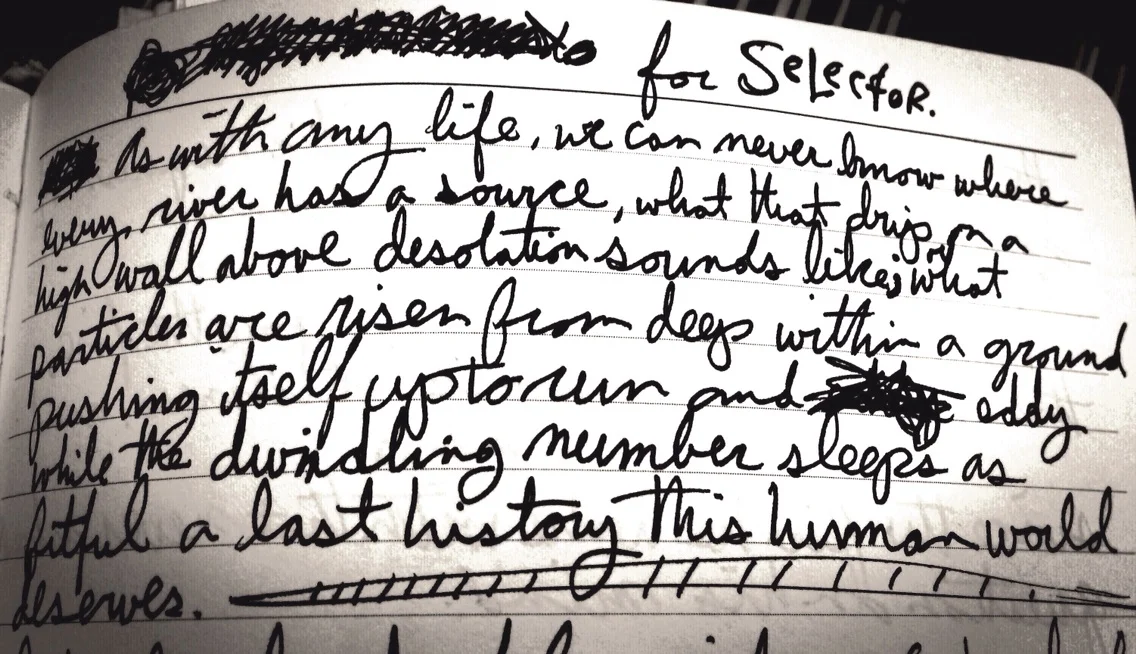 for Selector.
As with any life, we can never know where
every river has a source, what that drip on a
high wall above desolation sounds like; what
particles are risen from deep within a ground
pushing itself up to run and eddy
while the dwindling number sleeps as
fitful a last history this human world
deserves.